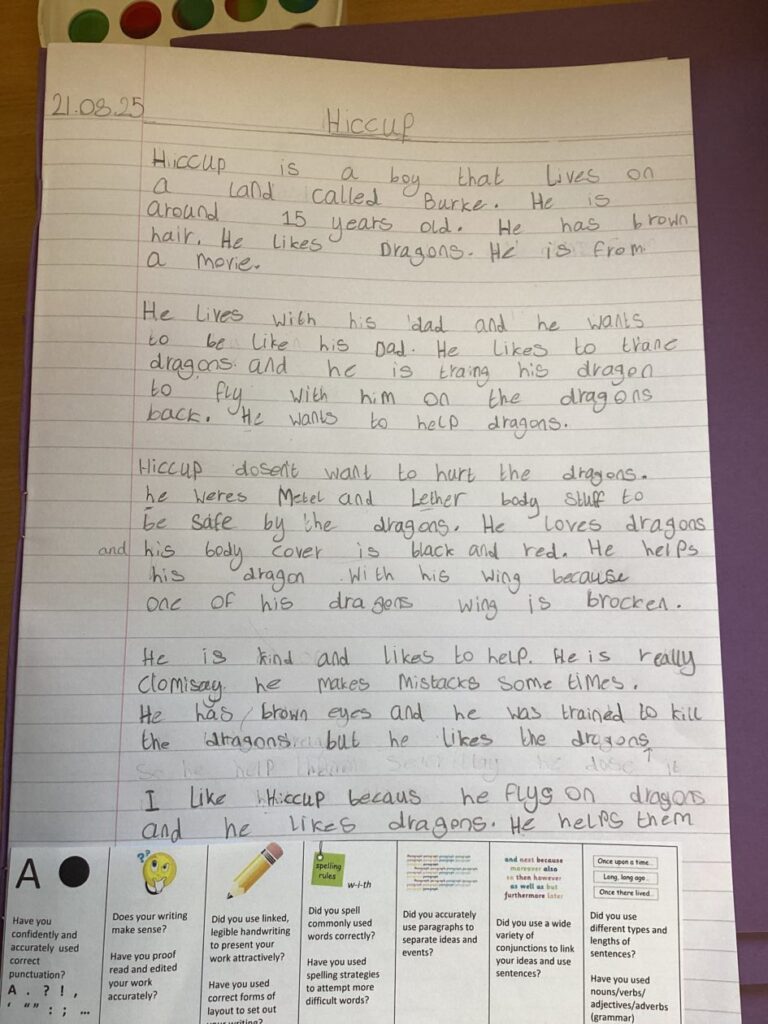 21.08.25
Hiccup
Hiccup is a boy that lives on
a land called Burke. He is
around 15 years old. He has brown
hair. He likes Dragons. He is from
a movie.
He lives with his dad and he wants
to be like his Dad. He likes to trane
dragons and he is traing his dragon
to fly with him on the dragons
back. He wants to help dragons.
Hiccup dosen't want to hurt the dragons.
he weres Metel and Lether body stuff to
be safe by the dragons. He loves dragons
and his body cover is black and red. He helps
his dragon with his wing because
one of his dragons wing is brocken.
He is kind and likes to help. He is really
Clomisay he makes mistacks some times.
He has brown eyes and he was trained to kill
the dragons but he likes the dragons
so he help them he dose it
I like Hiccup becaus he flys on dragons
and he likes dragons. He helps them
A
Have you
confidently and
accurately used
correct
punctuation?
A . ? ! ,
' “” : ; …
??
Does your writing
make sense?
Have you proof
read and edited
your work
accurately?
Did you use linked,
legible handwriting
to present your
work attractively?
Have you used
correct forms of
layout to set out
your writing?
spelling
rules
w-i-th
Did you spell
commonly used
words correctly?
Have you used
spelling strategies
to attempt more
difficult words?
Did you accurately
use paragraphs to
separate ideas and
events?
and next because
moreover also
so then however
as well as but
furthermore later
Did you use a wide
variety of
conjunctions to link
your ideas and use
sentences?
Once upon a time...
Long, long ago...
Once there lived...
Did you use
different types and
lengths of
sentences?
Have you used
nouns/verbs/
adjectives/adverbs
(grammar)